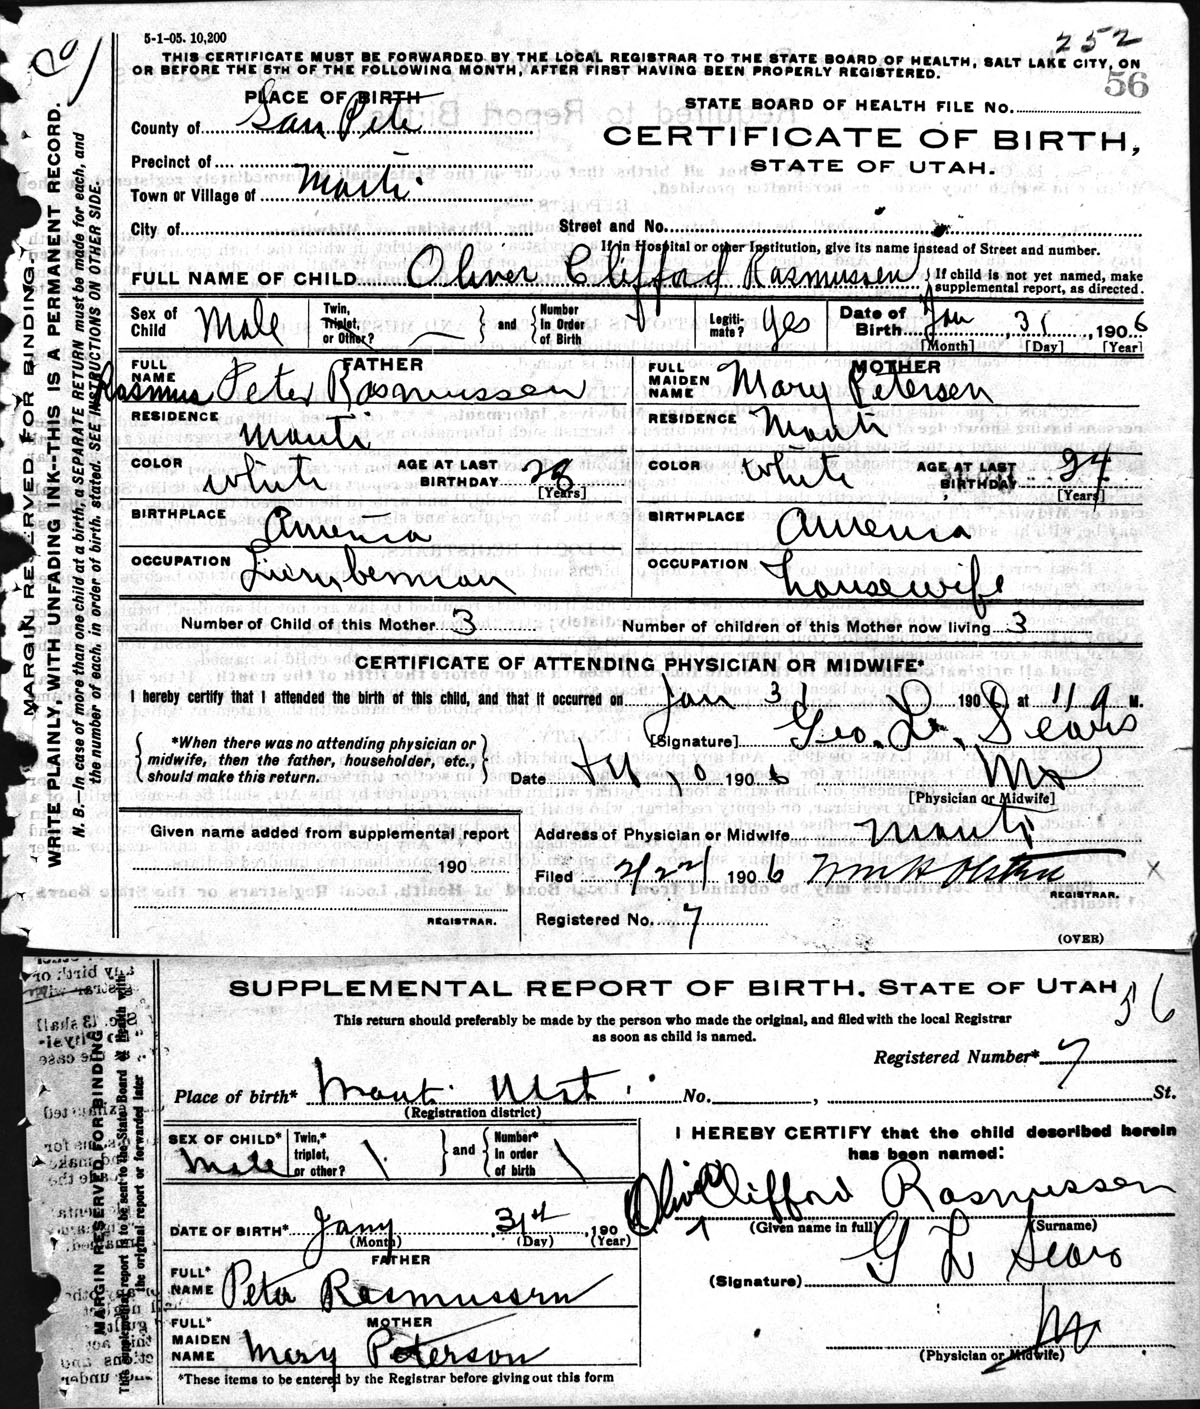 5-1-05. 10,200
252
THIS CERTIFICATE MUST BE FORWARDED BY THE LOCAL REGISTRAR TO THE STATE BOARD OF HEALTH, SALT LAKE CITY, ON
OR BEFORE THE 5TH OF THE FOLLOWING MONTH, AFTER FIRST HAVING BEEN PROPERLY REGISTERED.
56
PLACE OF BIRTH
STATE BOARD OF HEALTH FILE NO.
County of San Pete
CERTIFICATE OF BIRTH,
STATE OF UTAH.
Precinct of
Town or Village of Manti
City of
Street and No.
If in Hospital or other Institution, give its name instead of Street and number.
FULL NAME OF CHILD Oliver Clifford Rasmussen
If child is not yet named, make supplemental report, as directed.
Sex of Child Male
Twin, Triplet, or Other?
and
Number In Order of Birth
Legitimate? yes
Date of Birth Jan 31 1906
[Month] [Day] [Year]
FATHER
FULL NAME Rasmus Peter Rasmussen
MOTHER
FULL MAIDEN NAME Mary Petersen
RESIDENCE Manti
RESIDENCE Manti
COLOR White AGE AT LAST BIRTHDAY 28 [Years]
COLOR White AGE AT LAST BIRTHDAY 24 [Years]
BIRTHPLACE America
BIRTHPLACE America
OCCUPATION Lumberman
OCCUPATION housewife
Number of Child of this Mother 3
Number of children of this Mother now living 3
CERTIFICATE OF ATTENDING PHYSICIAN OR MIDWIFE*
I hereby certify that I attended the birth of this child, and that it occurred on Jan 31 1906 at 11 a M.
*When there was no attending physician or midwife, then the father, householder, etc., should make this return.
[Signature] Geo. L. Sears
Date 190 6
MD
[Physician or Midwife]
Given name added from supplemental report
190
REGISTRAR.
Address of Physician or Midwife Manti
Filed 2/22/ 1906
REGISTRAR.
Registered No. 7
(OVER)
MARGIN RESERVED FOR BINDING
WRITE PLAINLY, WITH UNFADING INK--THIS IS A PERMANENT RECORD.
N. B.—In case of more than one child at a birth, a SEPARATE RETURN must be made for each, and
the number of each, in order of birth, stated. SEE INSTRUCTIONS ON OTHER SIDE.
SUPPLEMENTAL REPORT OF BIRTH, STATE OF UTAH
56
This return should preferably be made by the person who made the original, and filed with the local Registrar
as soon as child is named.
Registered Number* 7
Place of birth* Manti Utah No. , St.
(Registration district)
SEX OF CHILD* Male
Twin,* triplet, or other?
and
Number* in order of birth
I HEREBY CERTIFY that the child described herein
has been named:
Oliver Clifford Rasmussen
(Given name in full) (Surname)
DATE OF BIRTH* Jany 31st 190
(Month) (Day) (Year)
FATHER
FULL* NAME Peter Rasmussen
(Signature) G L Sears
MOTHER
FULL* MAIDEN NAME Mary Peterson
(Physician or Midwife)
*These items to be entered by the Registrar before giving out this form
MARGIN RESERVED FOR BINDING
This supplemental report is to be sent to the State Board of Health with
the original report or forwarded later